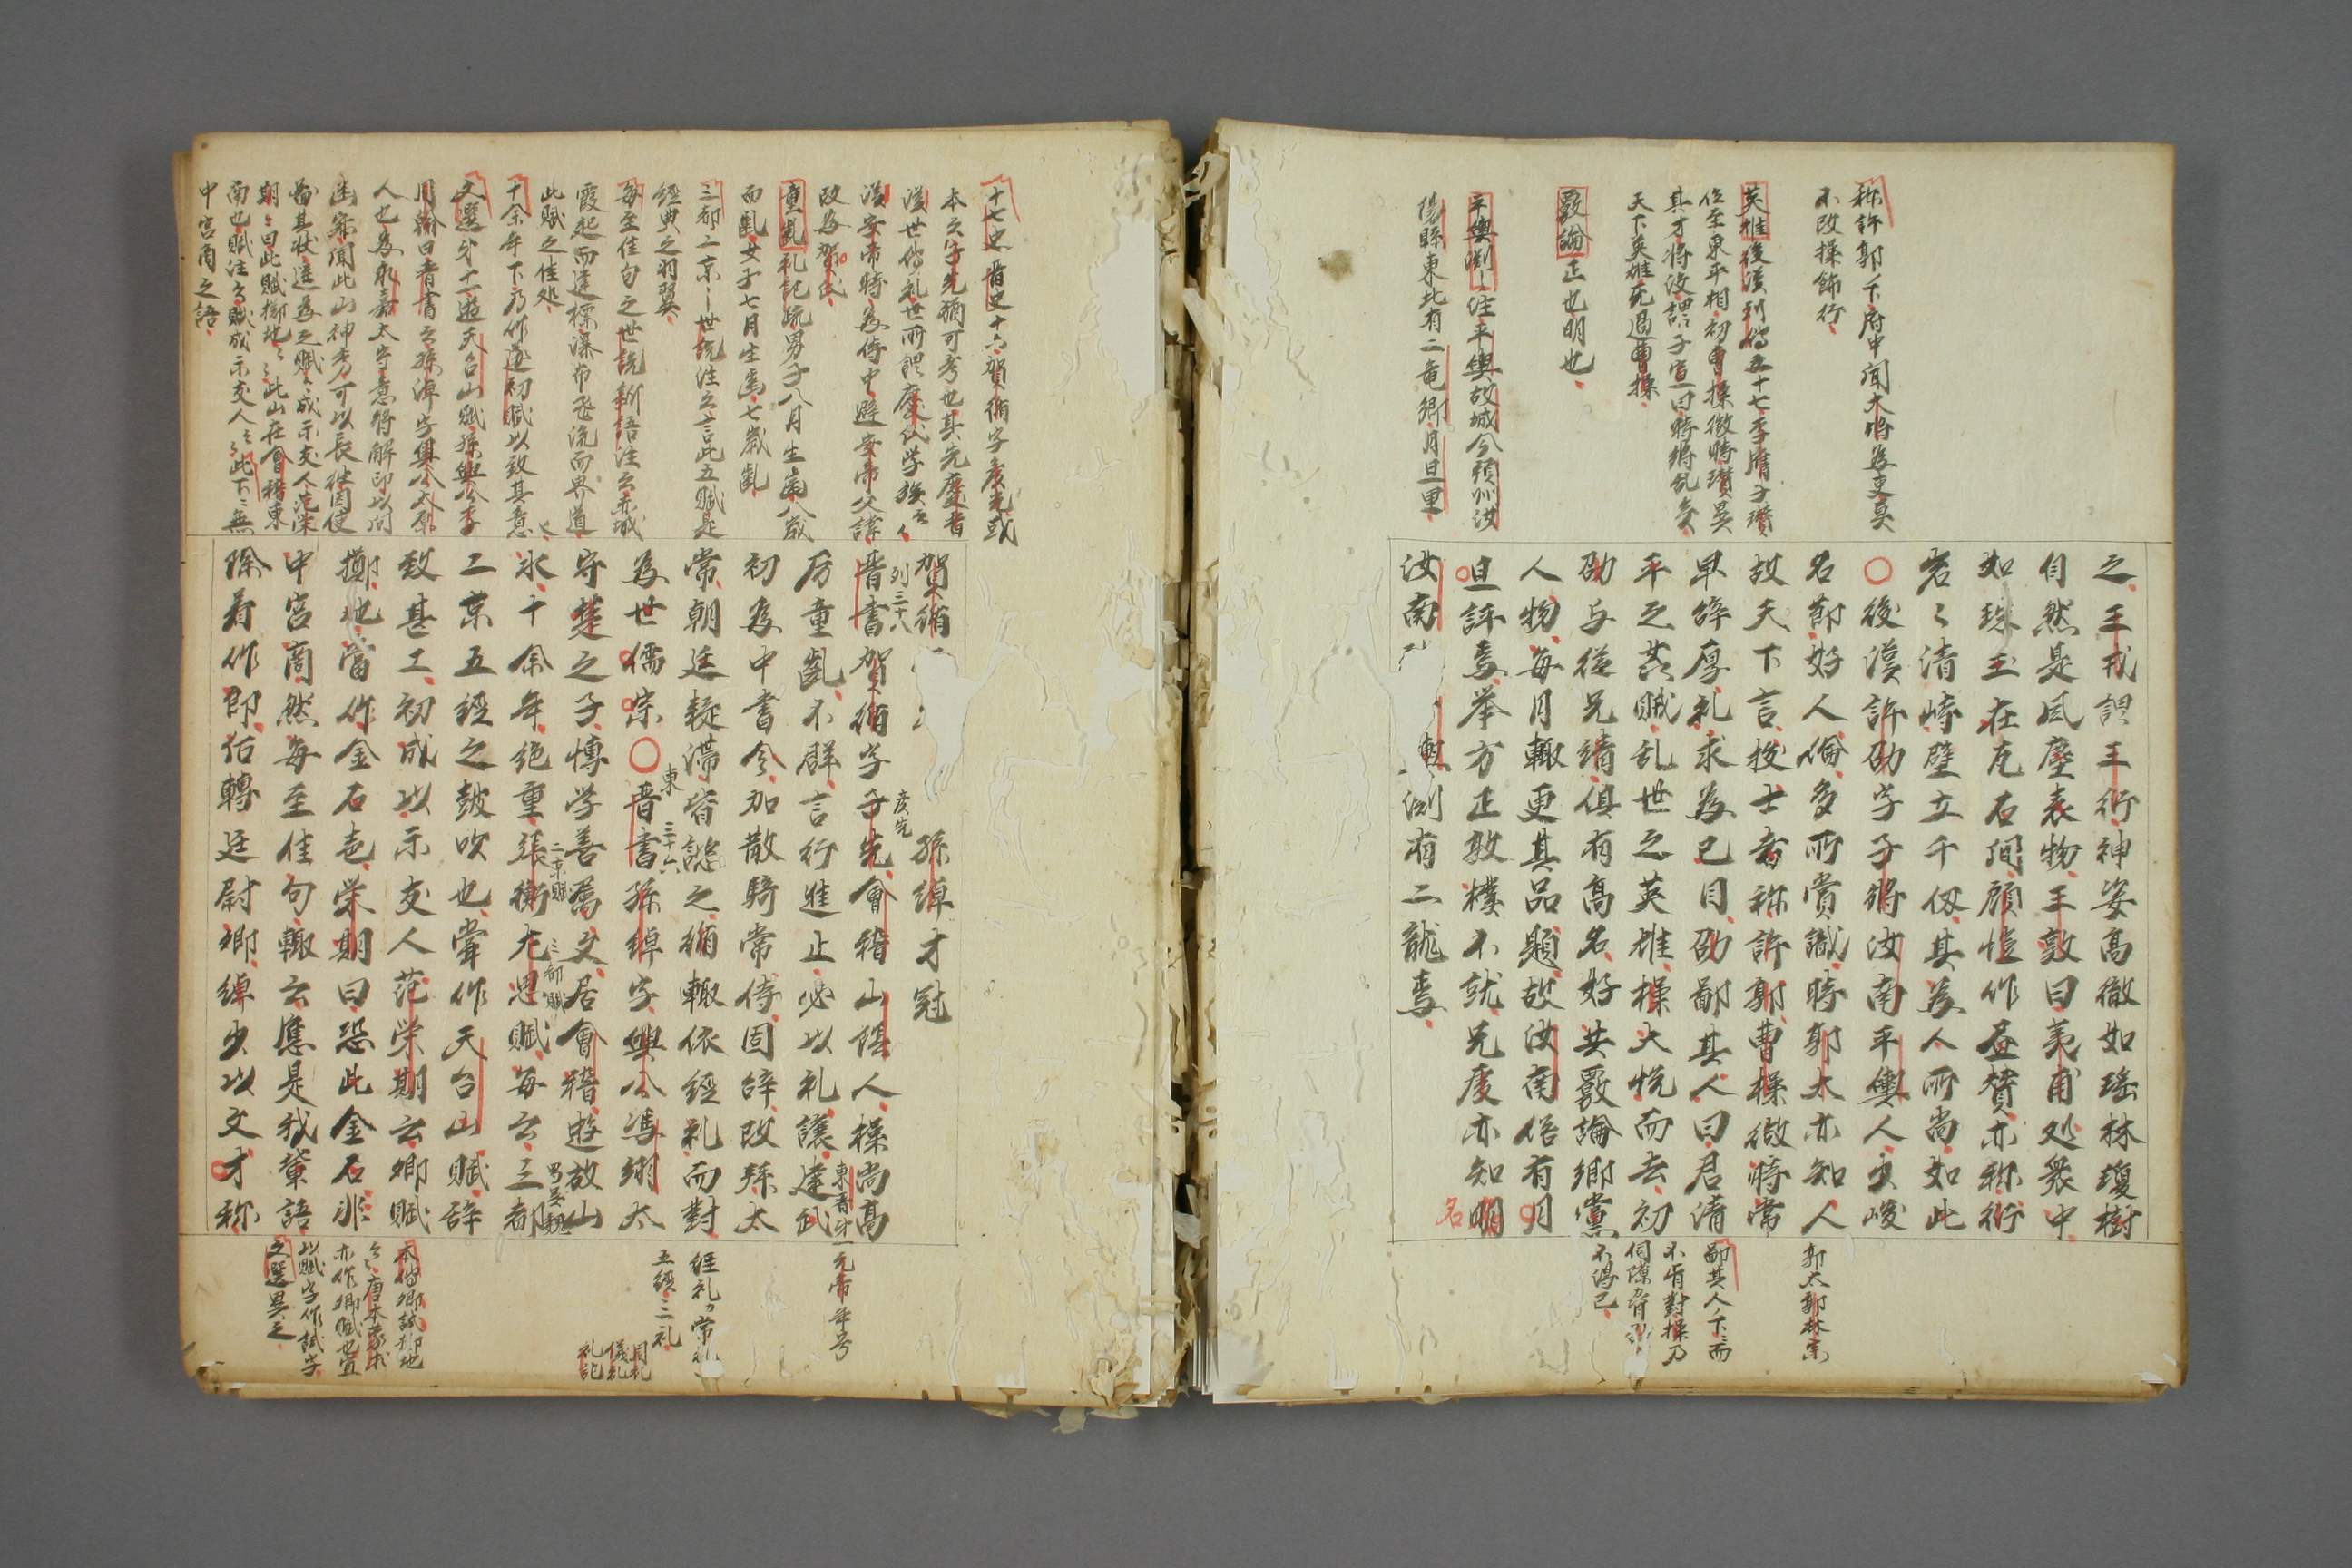 称許郭〻下府中聞大将為吏莫
不改操飾行
英雄後漢列傳五十七李膺子瓚
位至東平相初曹操微時瓚異
其才将没謂子宣曰時将乱矣
天下英雄无過曹操
覈論正也明也
平輿淵〻注平輿故城今預州汝
陽縣東北有二竜郷月旦里
之王戎謂王衍神姿高徹如瑶林瓊樹
自然是風塵表物王敦曰夷甫処衆中
如珠玉在瓦石間顧愷作畫賛亦称衍
岩〻清峙壁立千仭其為人所尚如此
〇後漢許劭字子将汝南平輿人少峻
名節好人倫多所賞識時郭太亦知人
故天下言拔士者称許郭曹操微時常
卑辞厚礼求為己目劭鄙其人曰君清
平之姦賊乱世之英雄操大悦而去初
劭与従兄靖俱有高名好共覈論郷黨
人物毎月輙更其品題故汝南俗有月
旦評焉挙方正敦樸不就兄虔亦知名
汝南 淵有二龍焉
郭太郭林宗
鄙其人〻下而
不肯對操乃
伺隙脅
不得已
十七史晋史十六賀循字彦先或
本云子先猶可考也其先慶普
漢世傳礼世所謂慶氏学族
漢安帝時為侍中避安帝父諱
改為賀氏
童齓礼記疏男子八月生歯八歳
而齓女子七月生歯七歳齓
三都二京〻世説注云言此五賦是
經典之羽翼
毎至佳句之世説新語注云赤城
霞起而建標瀑布飛流而界道
此賦之佳処
十余年下乃作遂初賦以致其意
文選第十一遊天台山賦孫興公李
周翰曰晋書云孫淖字興公太原
人也為永嘉太守意将解印以向
幽寂聞此山神秀可以長往因使
啚其状遥為之賦〻成示友人范栄
期〻曰此賦擲地〻此山在會稽東
南也賦注〻賦成示友人〻此下無
中宮商之語
賀循 孫綽才冠
晋書列三十八賀循字子先會稽山陰人操尚高
彦先
厉童齓不群言行進止必以礼譲建武
初為中書令加散騎常侍固辞改拜太
常朝廷疑滞皆諮之循輙依經礼而對
為世儒宗〇東晋書三十六孫綽字興公馮翊太
守楚之子博学善属文居會稽遊放山
水十余年絶重張衡二京賦左思三都賦毎云三都
二京五經之鼓吹也嘗作天台山賦辞
致甚工初成以示友人范栄期云郷賦
擲地當作金石声栄期曰恐此金石非
中宮商然毎至佳句輙云應是我輩語
除着作郎伝轉廷尉卿綽少以文才称
東晋第一元帝年号
經礼乃常礼
五經三礼
周礼
儀礼
礼記
本傳卿試擲地
〻唐本蒙求
亦作卿賦也宜
以賦字作試字
文選異之